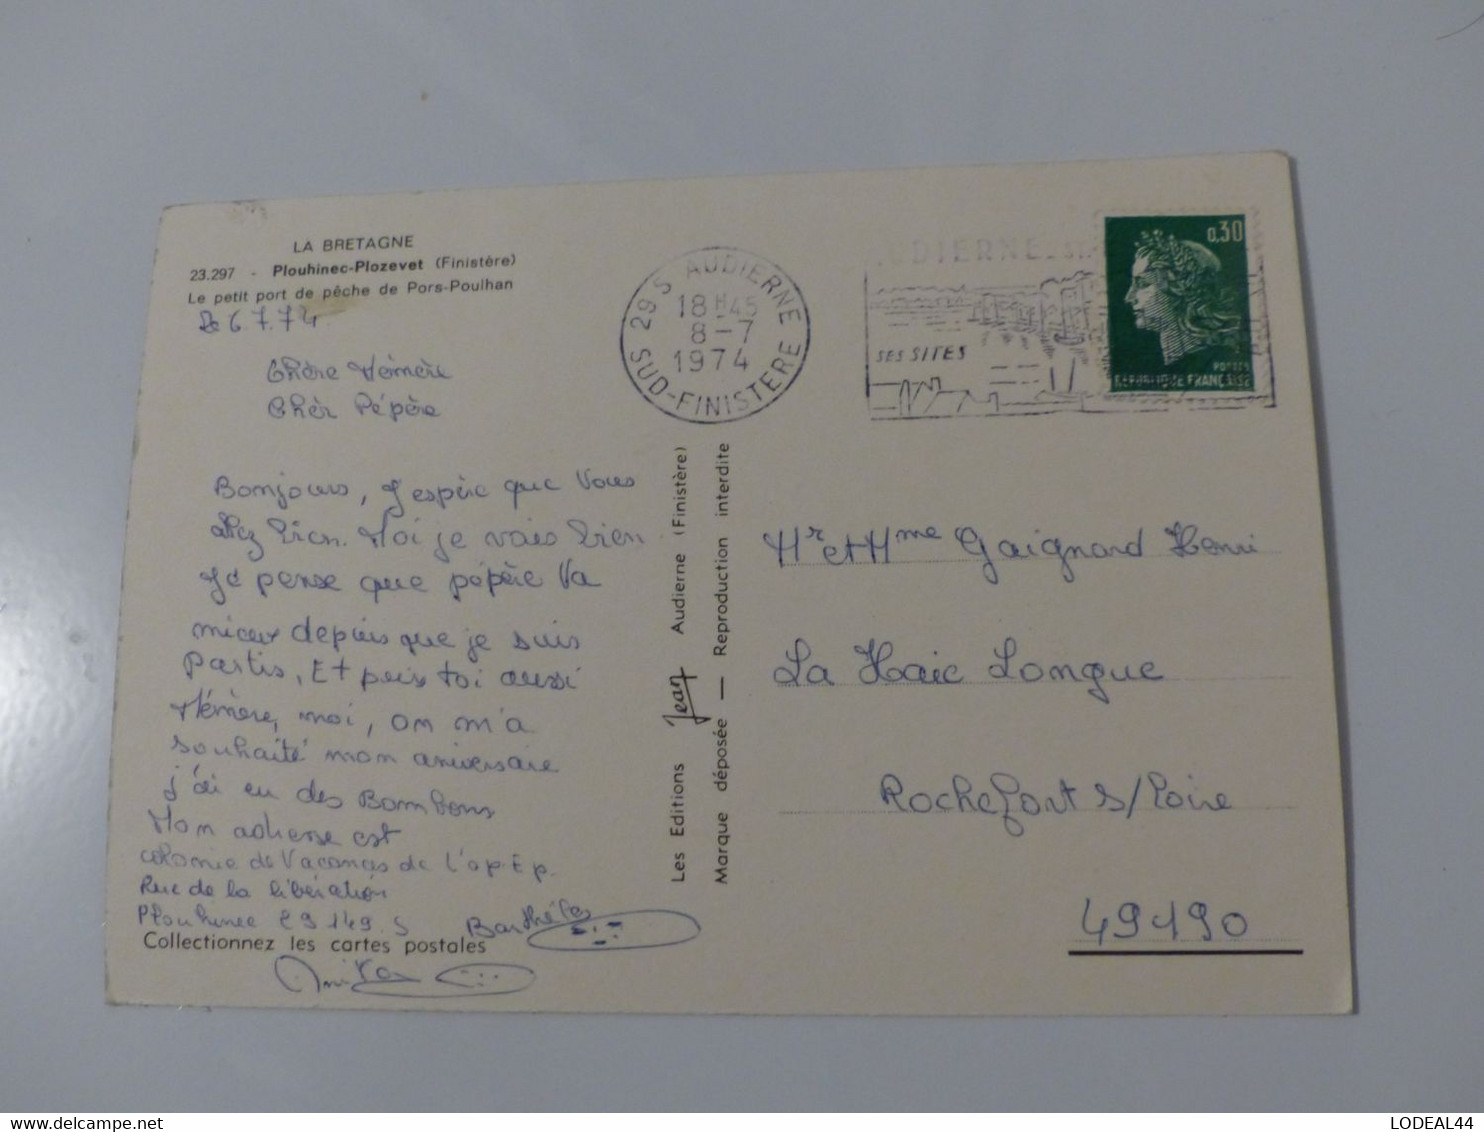 LA BRETAGNE
23.297 - Plouhinec-Plozevet (Finistère)
Le petit port de pêche de Pors-Poulhan
Le 6.7.74
Chère Mémère
Chèr Pépère
Bonjours, J'espère que Vous
allez bien. Moi je vais bien
Je pense que pépère Va
mieux depuis que je suis
partis, Et puis toi aussi
Mémère, moi, on m'a
souhaité mon aniversaire
j'ai eu des Bombons
Mon adresse est
colonie de Vacances de l'o.p.E.p.
Rue de la libération
Plouhinec 29149.S Barthélés
Collectionnez les cartes postales
Les Editions Jean Audierne (Finistère)
Marque déposée — Reproduction interdite
29 S AUDIERNE
18 H 45
8-7
1974
SUD-FINISTERE
AUDIERNE
SES SITES
0,30
POSTES
REPUBLIQUE FRANCAISE
Mr et Mme Gaignard Henri
La Haie Longue
Rochefort s/Loire
49190
LODEAL44